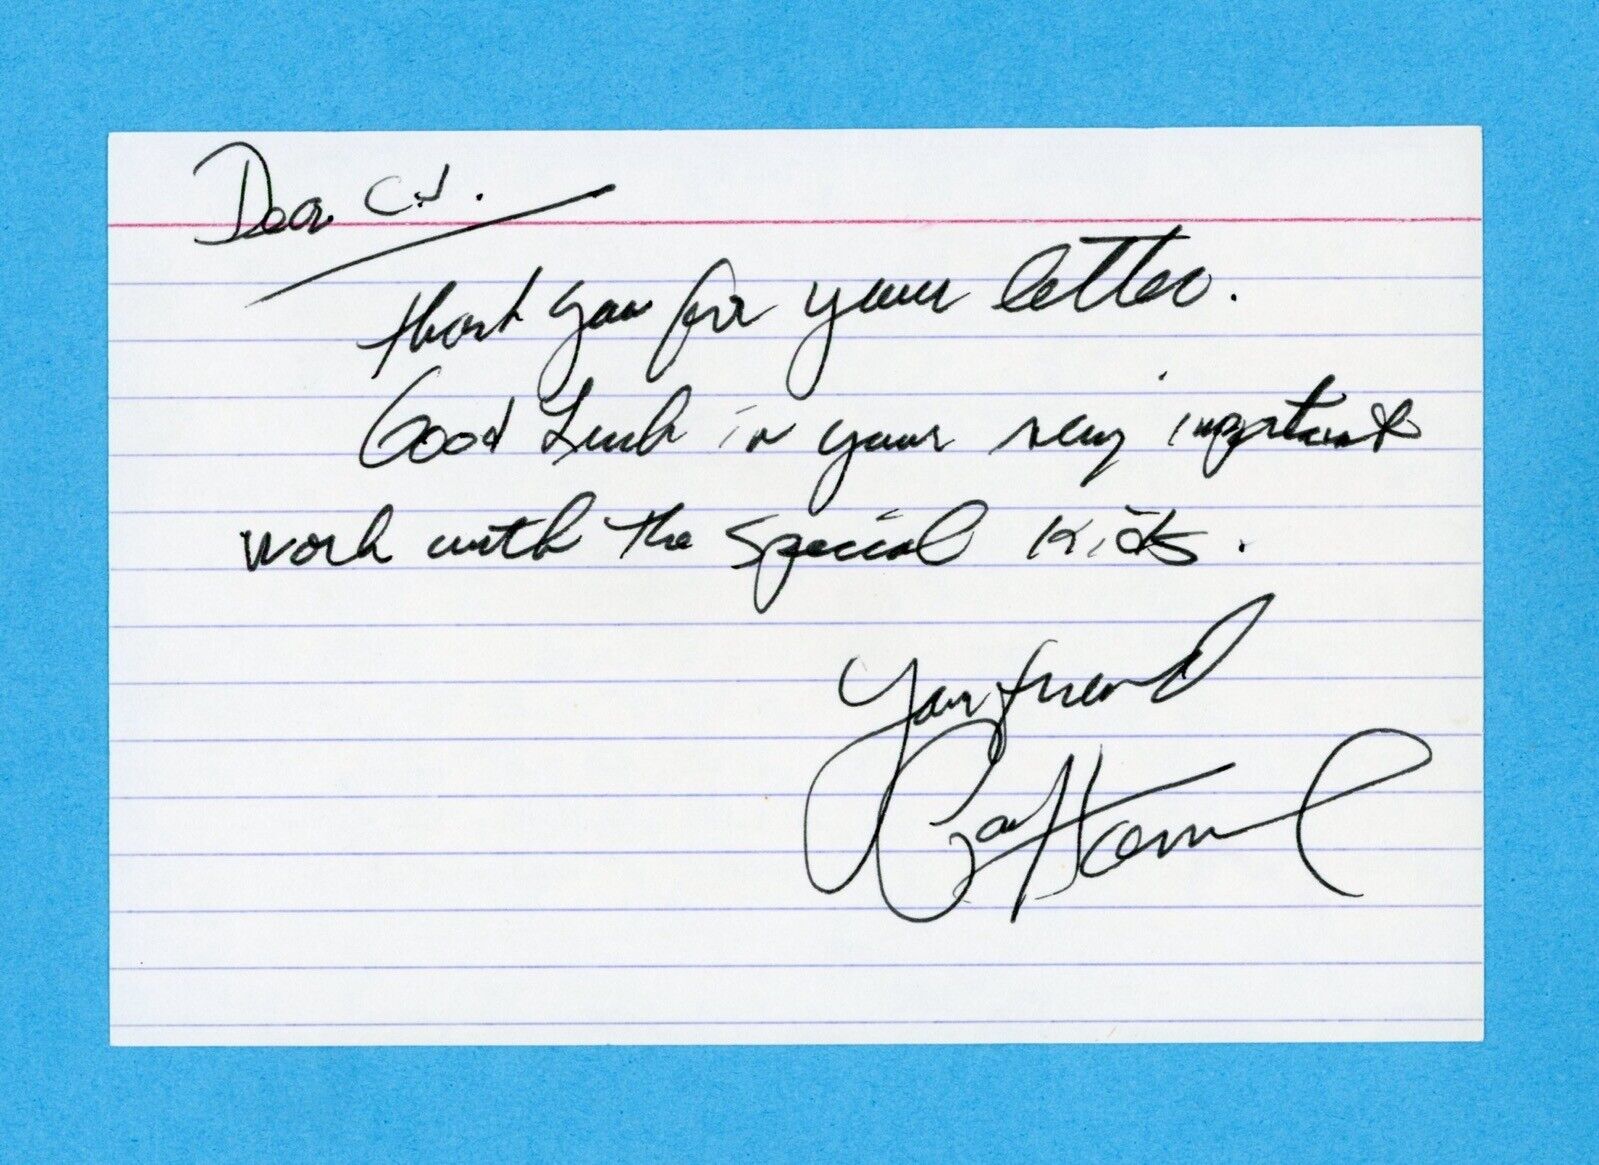 Dear C.J.
Thank you for your letter.
Good Luck in your very important
work with the special kids.
Your friend